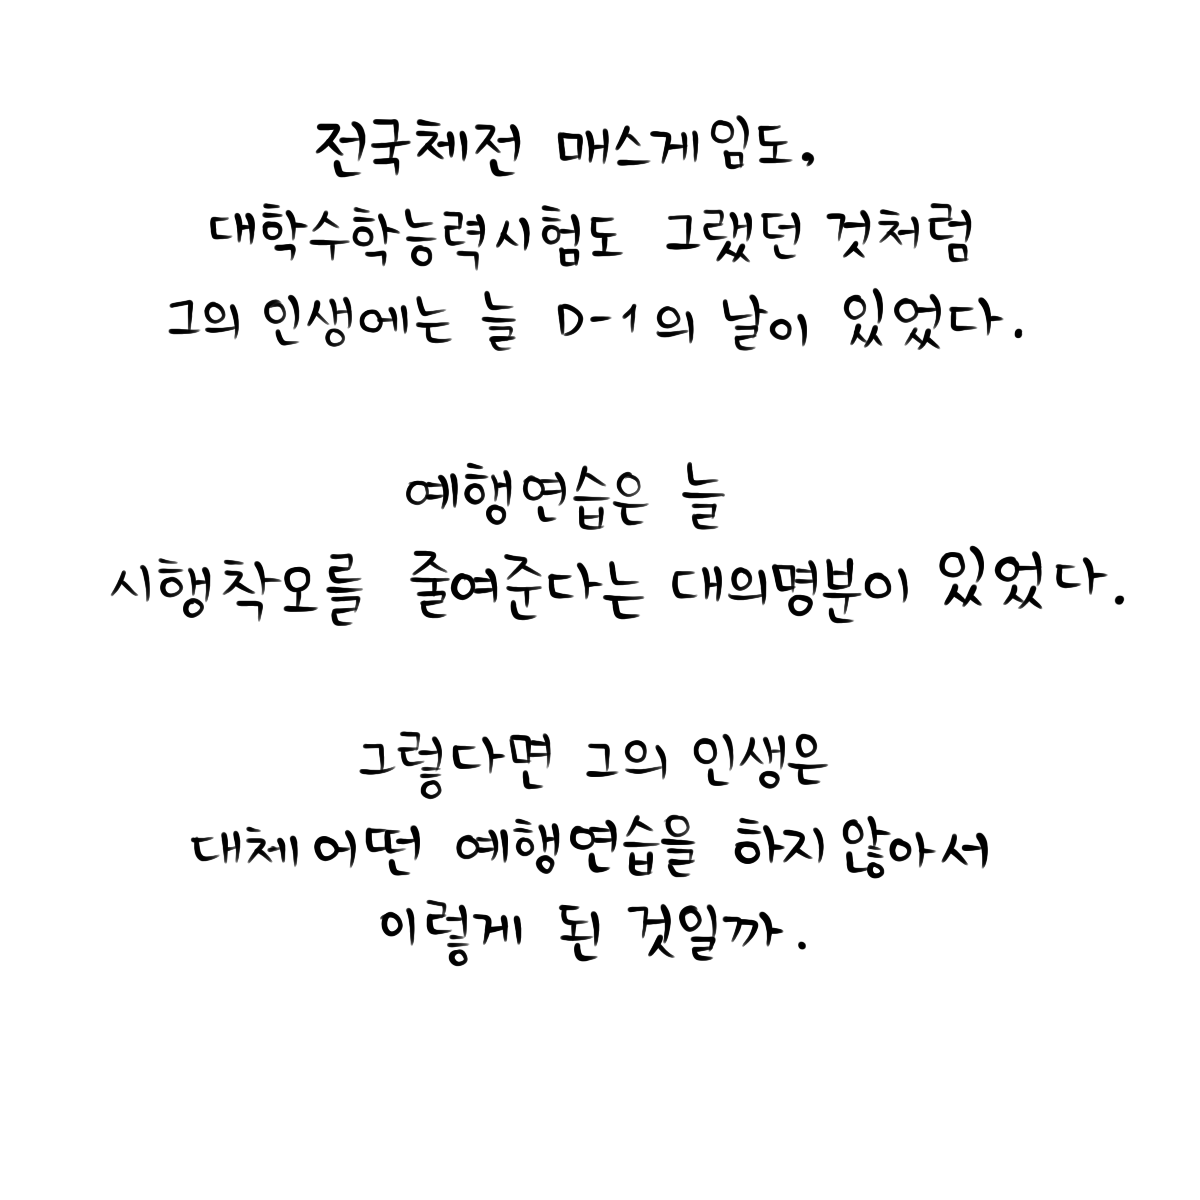 전국체전 매스게임도,
대학수학능력시험도 그랬던 것처럼
그의 인생에는 늘 D-1의 날이 있었다.
예행연습은 늘
시행착오를 줄여준다는 대의명분이 있었다.
그렇다면 그의 인생은
대체 어떤 예행연습을 하지 않아서
이렇게 된 것일까.